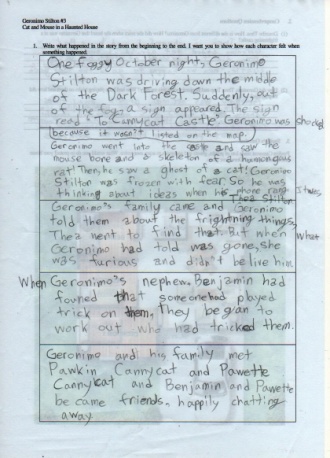 Geronimo Stilton #3
Cat and Mouse in a Haunted House
1. Write what happened in the story from the beginning to the end. I want you to show how each character felt when
something happened.
One foggy October night, Geronimo
Stilton was driving down the middle
of the Dark Forest. Suddenly, out
of the fog a sign appeared. The sign
read "To Cannycat Castle" Geronimo was shocked
because it wasn't listed on the map.
Geronimo went into the castle and saw the
mouse bone and a skeleton of a humongous
rat! Then, he saw a ghost of a cat! Geronimo
Stilton was frozen with fear So he was
thinking about ideas when his phone rang It was
Thea Stilton
Geronimo's family came and Geronimo
told them about the frightning things.
Thea went to find that. But when what
Geronimo had told was gone, she
was furious and didn't be live him.
When Geronimo's nephew. Benjamin had
founed that someone had played
trick on them, They began to
work out who had tricked them.
Geronimo and his family met
Pawkin Cannycat and Pawette
Cannykat and Benjamin and Pawette
be came friends, happily chatting
away